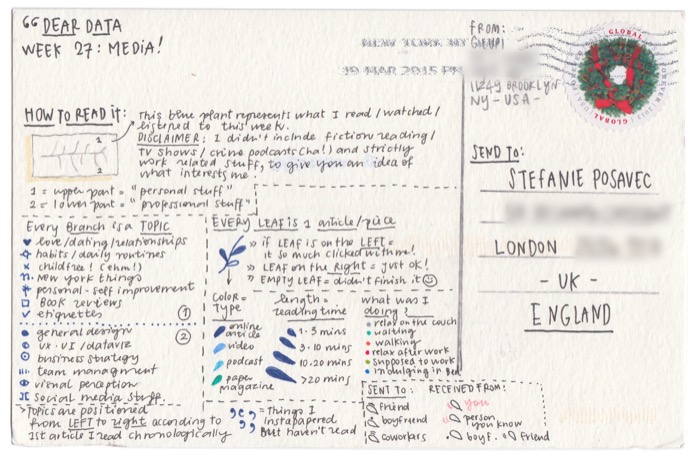 DEAR DATA
WEEK 27: MEDIA!
NEW YORK NY
19 MAR 2015 PM
FROM:
11249 BROOKLYN
NY - USA -
GLOBAL
FOREVER
GLOBAL
HOW TO READ iT:
This blue plant represents what I read/watched/
listened to this week.
DISCLAIMER: I didn't include fiction reading/
TV shows/crime podcasts (ha!) and strictly
work related stuff, to give you an idea of
what interests me.
1
2
1 = upper part = "personal stuff"
2 = lower part = "professional stuff"
SEND TO:
STEFANIE POSAVEC
LONDON
- UK -
ENGLAND
Every Branch is a TOPIC
love/dating/relationships
habits/daily routines
childfree! (ehm!)
New York things
personal-self improvement
Book reviews
etiquettes
1
general design
UX-UI/dataviz
business strategy
team managment
visual perception
social media stuff.
2
> Topics are positioned
from LEFT to right according to
1st article I read chronologically
EVERY LEAF is 1 article/piece
» if LEAF is on the LEFT =
it so much clicked with me!
» LEAF on the Right = just ok!
» EMPTY LEAF = didn't finish it
COLOR =
Type
online
article
video
podcast
paper
magazine
length =
reading time
1-3 mins
3-10 mins
10-20 mins
>20 mins
what was I
doing?
relax on the couch
waiting
walking
relax after work
supposed to work
indulging in bed
= Things I
instapapered
but haven't read
SENT TO:
friend
boyfriend
coworkers
RECEIVED FROM:
you
person
you know
boyf.
friend